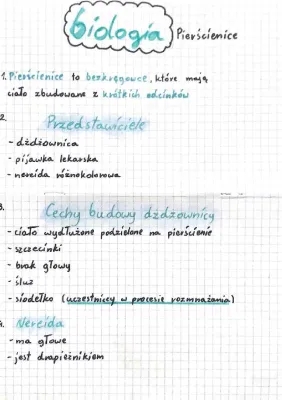 biologia Pierścienice
1. Pierścienice to bezkręgowce, które mają
ciało zbudowane z krótkich odcinków
2.
Przedstawiciele
- dżdżownica
- pijawka lekarska
- nereida różnokolorowa
3.
Cechy budowy dżdżownicy
- ciało wydłużone podzielone na pierścienie
- szczecinki
- brak głowy
- śluz
- siodełko (uczestnicy w procesie rozmnażania)
4. Nereida
- ma głowe
- jest drapieżnikiem